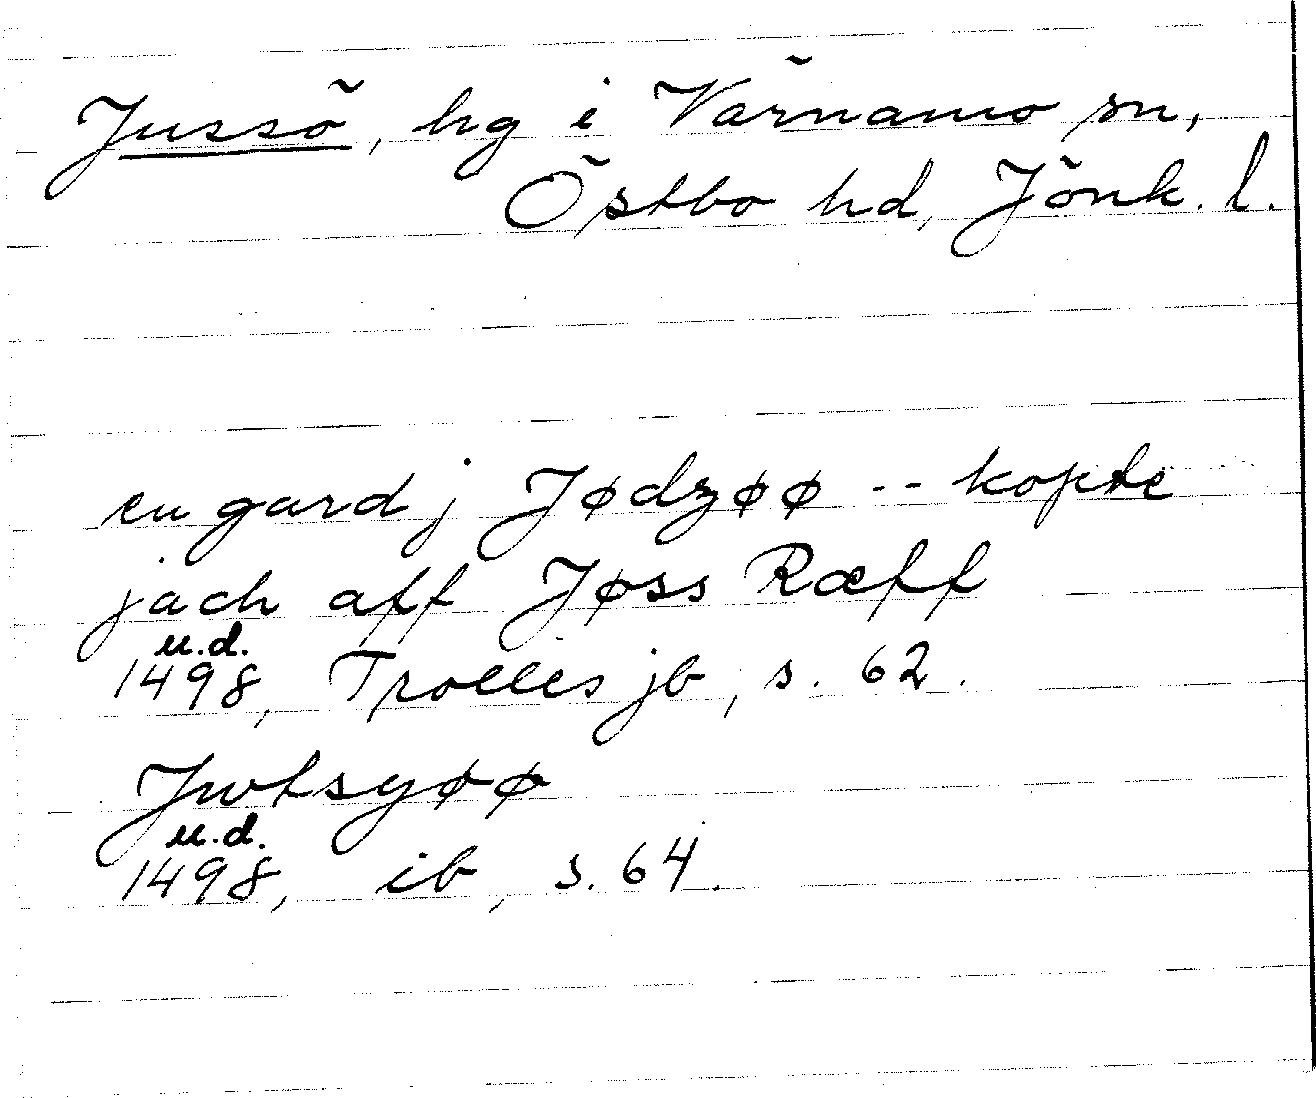 Jussö, hg i Värnamo sn,
Östbo hd, Jönk. l.
en gard j Jødzøø -- kopte
jach aff Jøss Ræff
u.d.
1498, Trolles jb, s. 62.
Jwtsyøø
u.d.
1498, ib, s. 64.